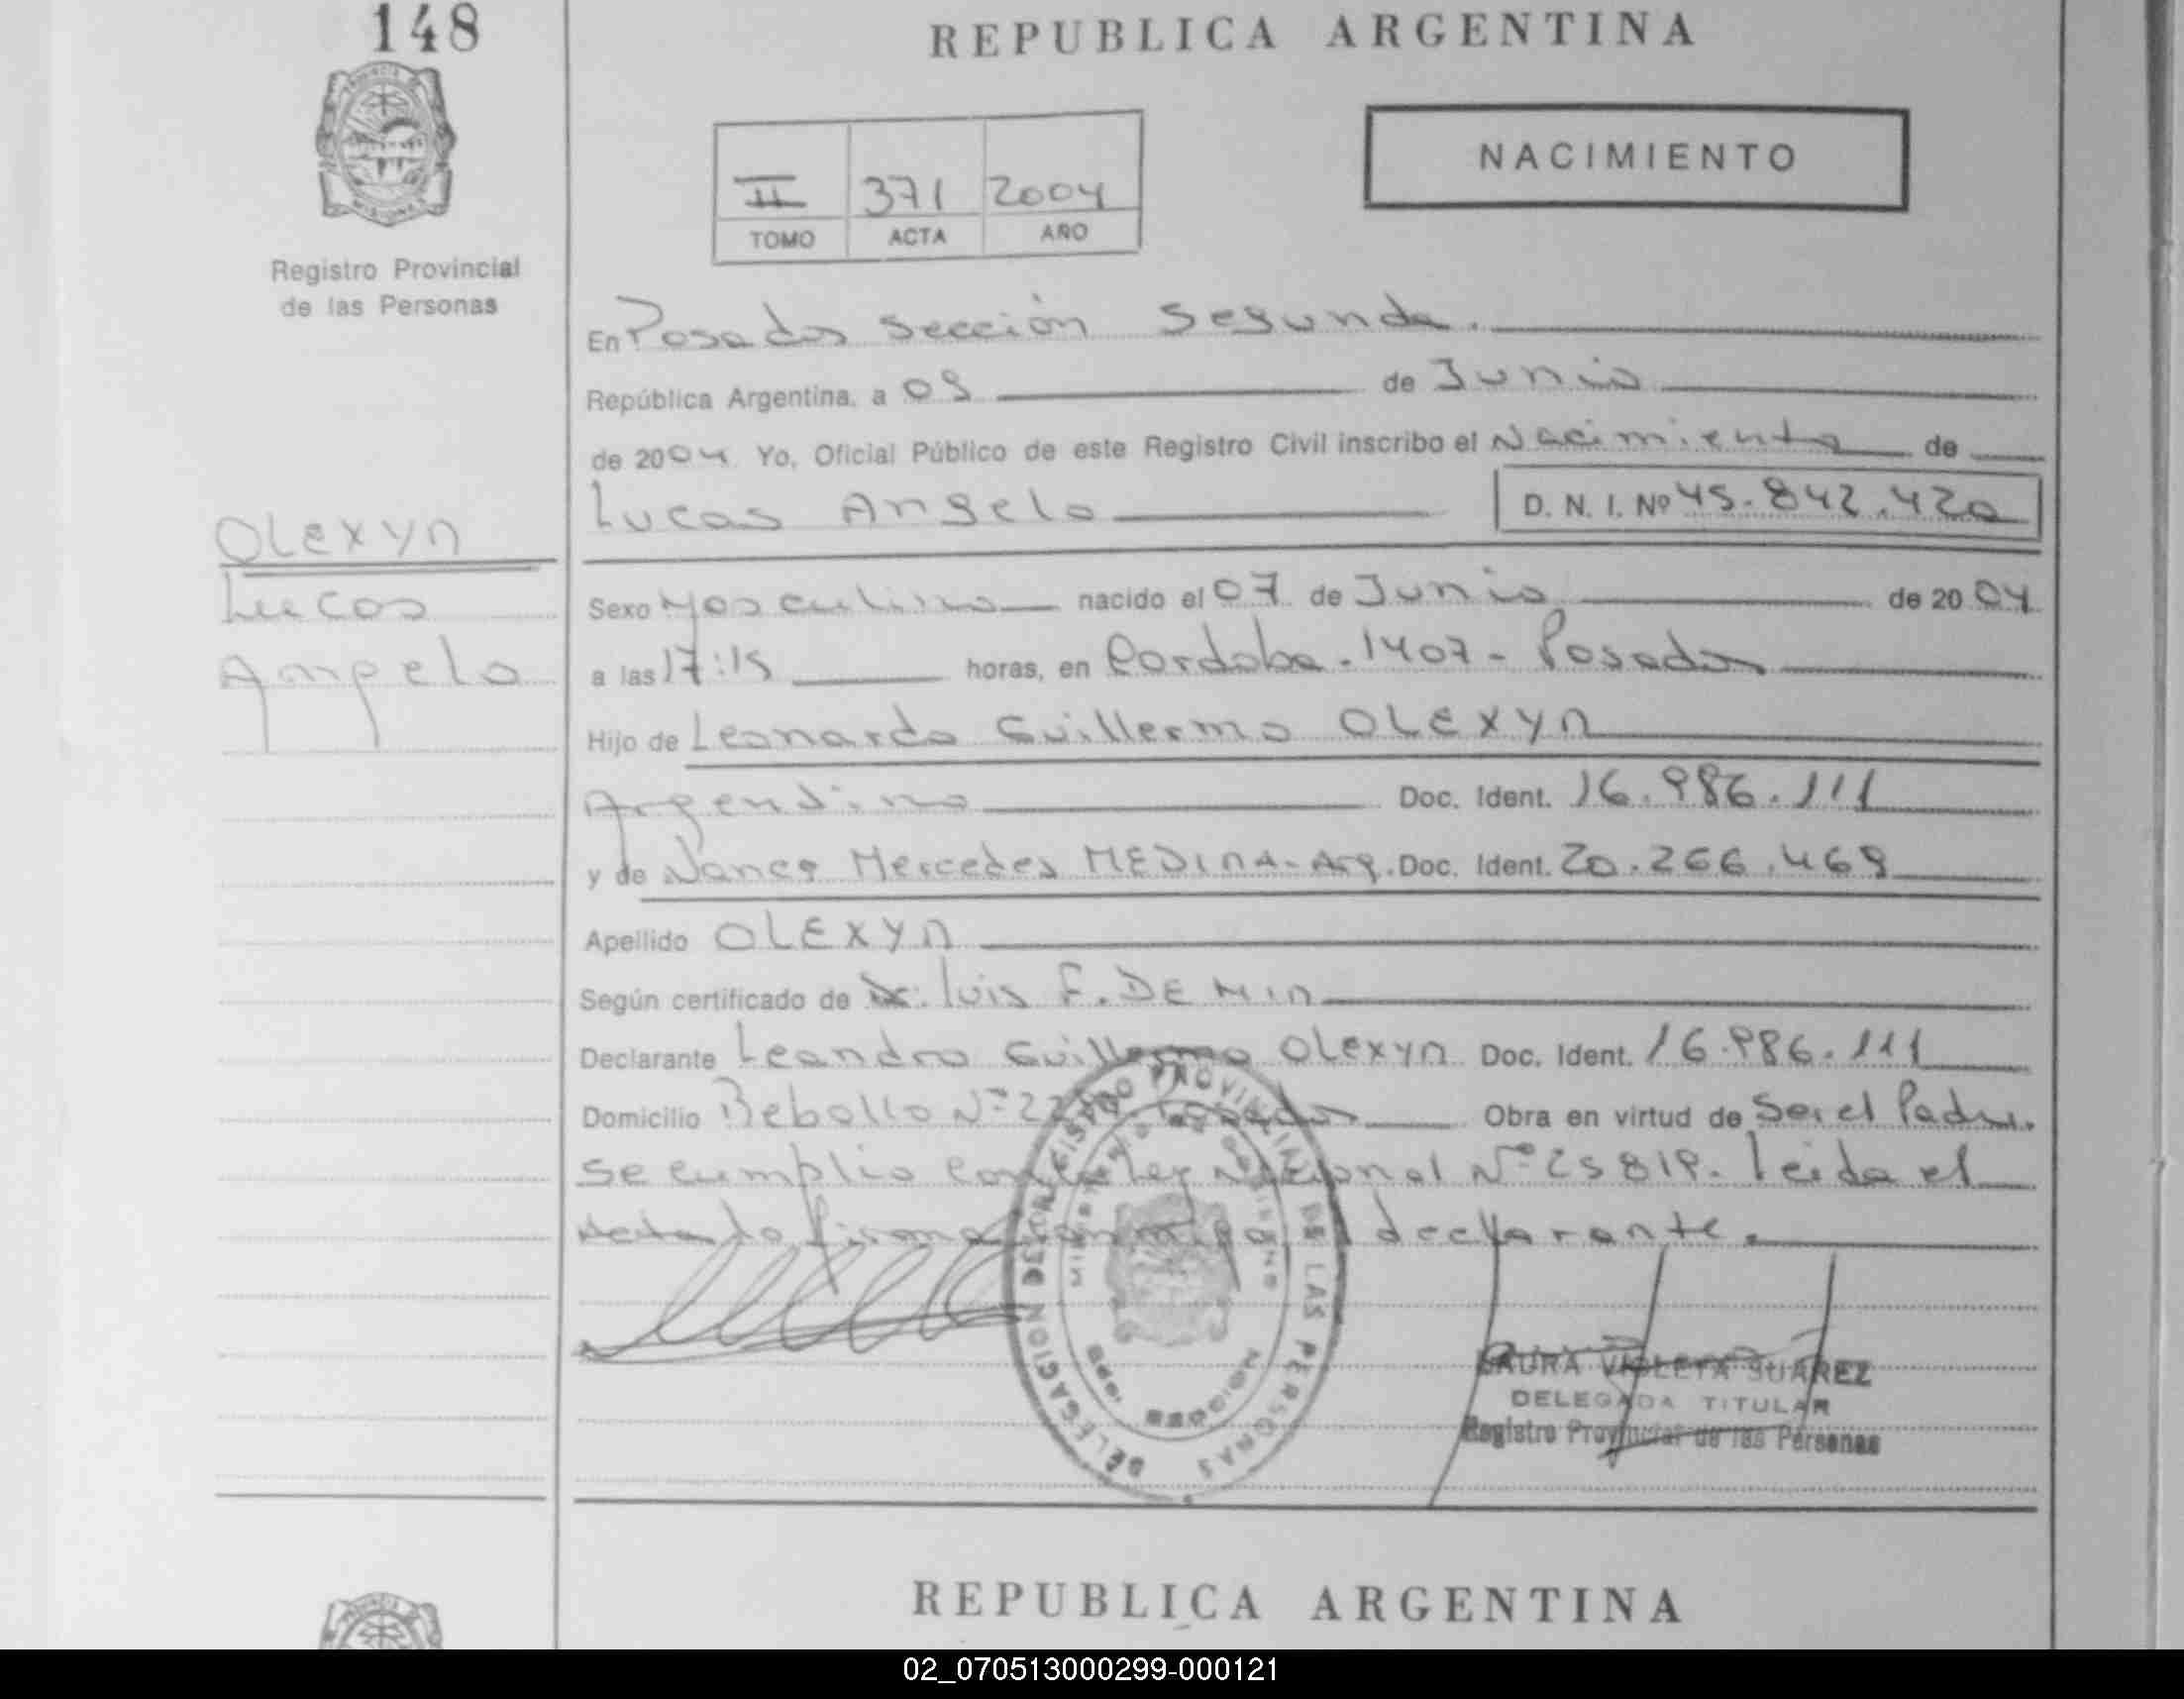 148
REPUBLICA ARGENTINA
NACIMIENTO
II 371 2004
TOMO ACTA AÑO
Registro Provincial
de las Personas
En Posadas Sección Segunda.
República Argentina, a 09 de Junio
de 2004 Yo, Oficial Público de este Registro Civil inscribo el Nacimiento de
Lucas Angelo D. N. I. Nº 45.842.420
OLEXYN
Lucas
Angelo
Sexo Masculino nacido el 07 de Junio de 2004
a las 17:15 horas, en Cordoba-1407-Posadas
Hijo de Leonardo Guillermo OLEXYN
Argentino Doc. Ident. 16.986.111
y de Nancy Mercedes MEDINA-Arg. Doc. Ident. 20.266.469
Apellido OLEXYN
Según certificado de Dr. Luis F. DE MIN
Declarante Leandro Guillermo Olexyn Doc. Ident. 16.986.111
Domicilio Rebollo Nº Posadas Obra en virtud de Ser el Padre.
Se cumplio con la Ley Nacional Nº 25819. Leida el
acta la firma conmigo el declarante.
DELEGACION DEL REGISTRO PROVINCIAL DE LAS PERSONAS
MINISTERIO DE GOBIERNO
MISIONES
LAURA VIOLETA SUAREZ
DELEGADA TITULAR
Registro Provincial de las Personas
REPUBLICA ARGENTINA
02_070513000299-000121